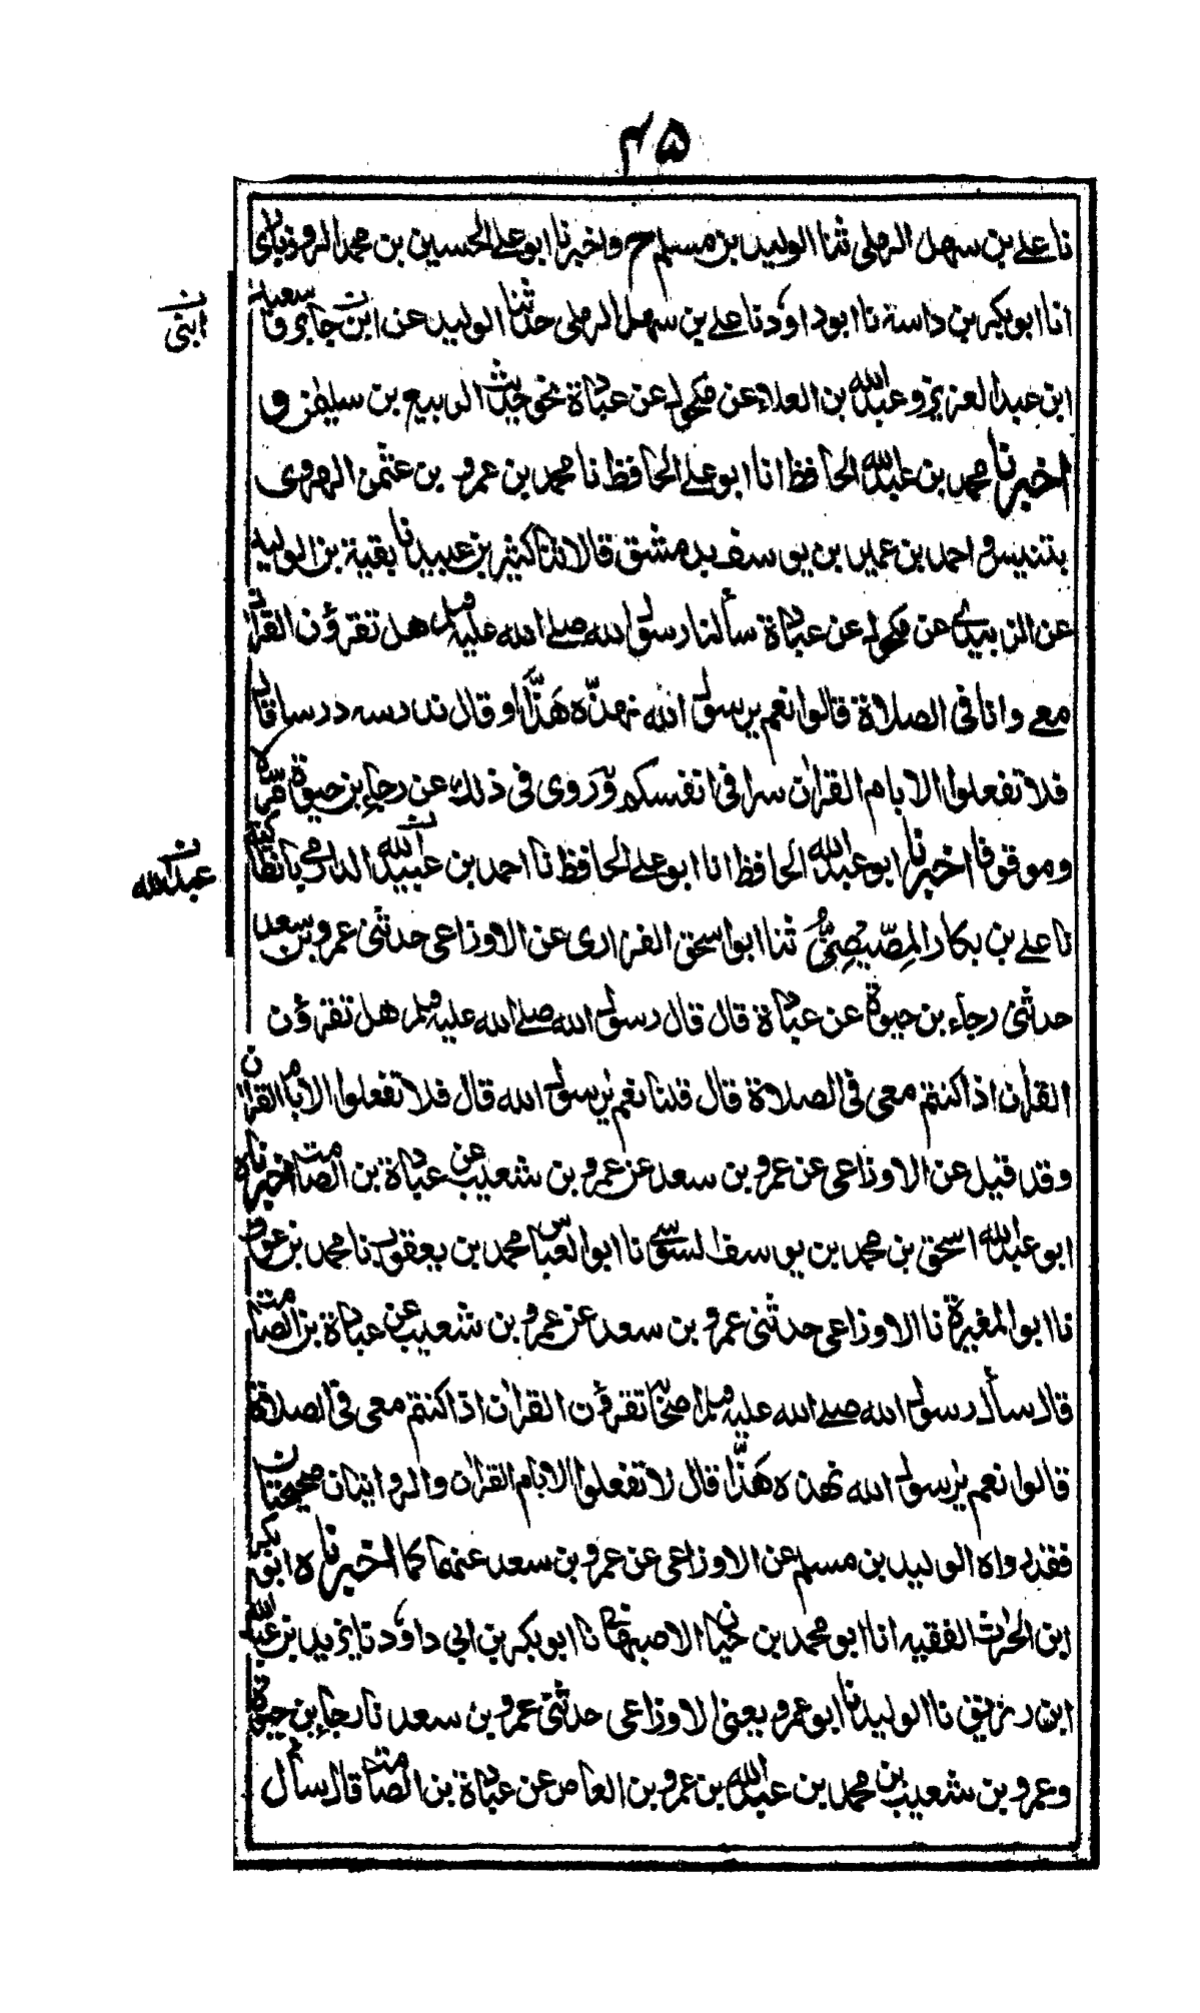 ۴۵
نا علے بن سهل الرملی ثنا الولید بن مسلم ح واخبرنا ابو علے الحسین بن محمد الروذباری
انا ابو بکر بن داسة نا ابو داود نا علے بن سهل الرملی حدثنا الولید عن ابن جابر و سعید
ابنی
ابن عبد العزیز و عبد الله بن العلاء عن مکحول عن عبادة نحو حدیث الربیع بن سلیمٰن و
اخبرنا محمد بن عبد الله الحافظ انا ابو علے الحافظ نا محمد بن عمرو بن عثمٰن الهروی
بتنیس و احمد بن عمیر بن یوسف بدمشق قالا ثنا کثیر بن عبید نا بقیة بن الولید
عن الزبیدی عن مکحول عن عبادة سألنا رسول الله صلے الله علیه وسلم هل تقرؤن القراٰن
معے وانا فی الصلاة قالوا نعم یرسول الله نهذّه هَذًّا او قال ندرسه درسا قال
فلا تفعلوا الا بام القراٰن سرا فی انفسکم وَرَوی فی ذلك عن رجاء بن حیوة مرة
وموقوفا اخبرنا ابو عبد الله الحافظ انا ابو علے الحافظ نا احمد بن عبید الله الدارمی بانطاکیة
عبد الله
نا علے بن بکار المِصّیصِیُّ ثنا ابو اسحق الفزاری عن الاوزاعی حدثنی عمرو بن سعد
حدثنی رجاء بن حیوة عن عبادة قال قال رسول الله صلے الله علیه وسلم هل تقرؤن
القراٰن اذا کنتم معی فی الصلاة قال قلنا نعم یرسول الله قال فلا تفعلوا الا بام القراٰن
وقد قیل عن الاوزاعی عن عمرو بن سعد عن عمرو بن شعیب عن عبادة بن الصامت اخبرناه
ابو عبد الله اسحق بن محمد بن یوسف السوسی نا ابو العباس محمد بن یعقوب نا محمد بن عوف
نا ابو المغیرة نا الاوزاعی حدثنی عمرو بن سعد عن عمرو بن شعیب عن عبادة بن الصامت
قال سأل رسول الله صلے الله علیه وسلم اصحابه تقرؤن القراٰن اذا کنتم معی فی الصلاة
قالوا نعم یرسول الله نهذه هَذًّا قال لا تفعلوا الا بام القراٰن والروایتان صحیحتان
فقد رواه الولید بن مسلم عن الاوزاعی عن عمرو بن سعد عنهما کما اخبرناه ابو بکر
ابن الحرث الفقیه انا ابو محمد بن حیان الاصبهانی نا ابو بکر بن ابی داود نا یزید بن عبد الله
ابن رزیق نا الولید نا ابو عمرو یعنی الاوزاعی حدثنی عمرو بن سعد نا رجاء بن حیوة
وعمرو بن شعیب بن محمد بن عبد الله بن عمرو بن العاص عن عبادة بن الصامت قال سأل